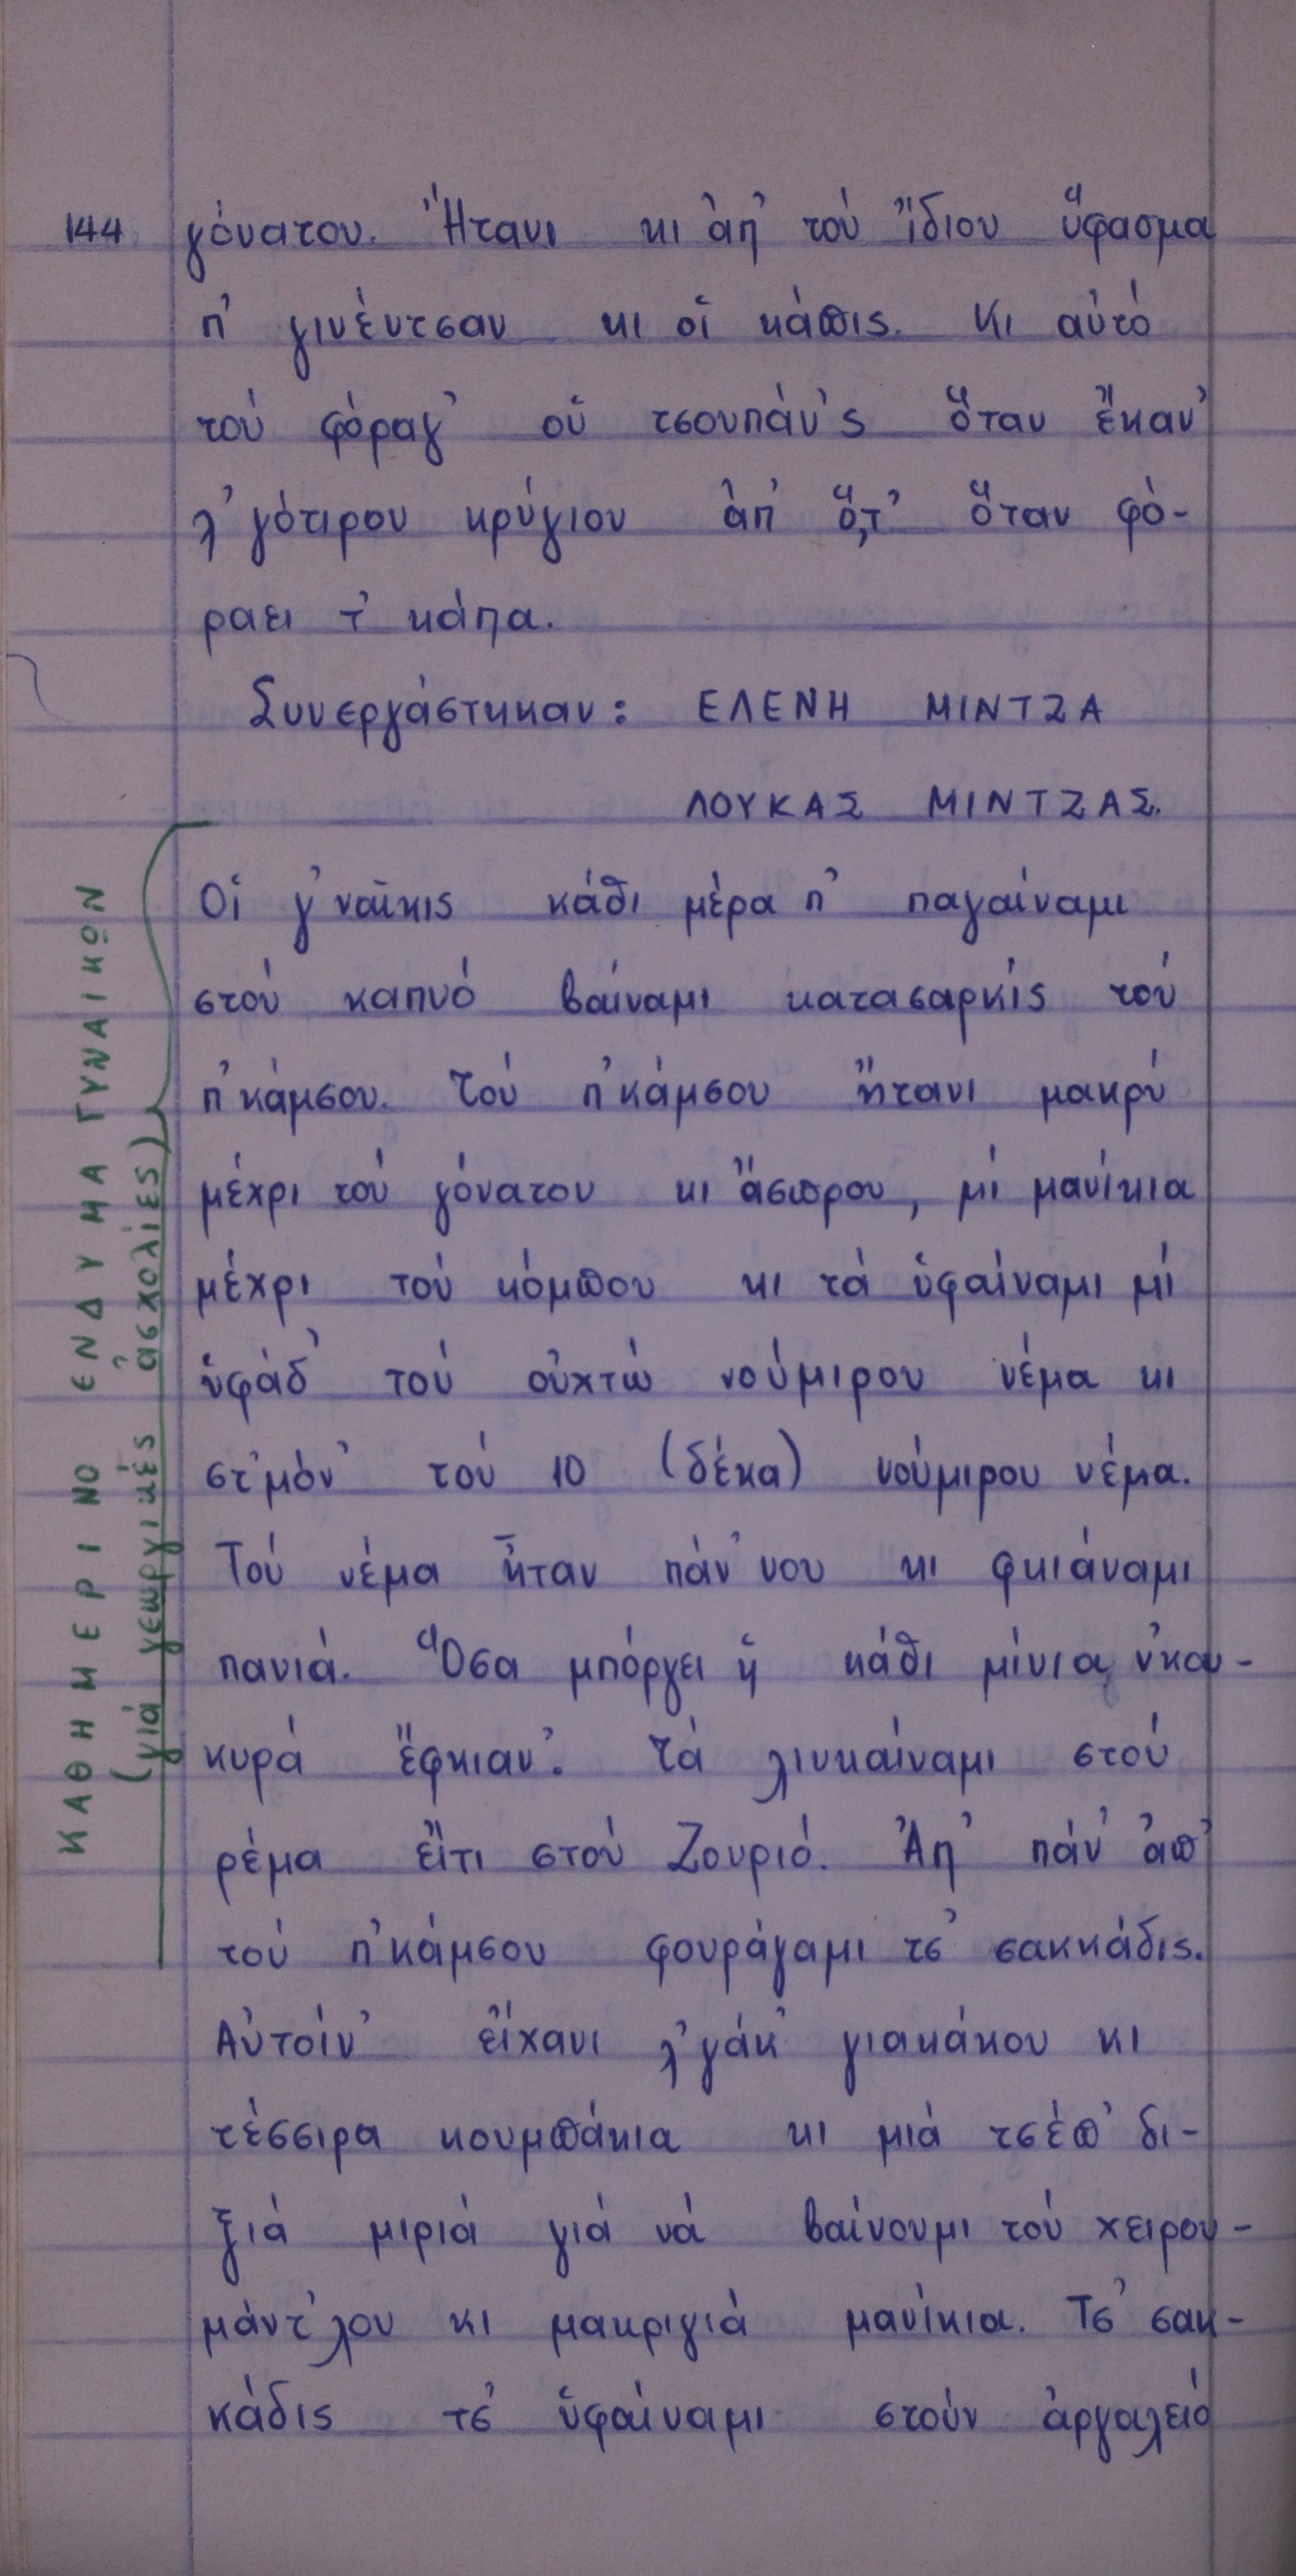 144 γόνατου. Ἤτανι κι ἀπ' τοὐ ἴδιου ὕφασμα
π' γινέντσαν κι οἱ κάπις. Κι αὐτό
τού φόραγ' οὑ τσουπάν'ς ὅταν ἔκαν'
λ'γότιρου κρύγιου ἀπ' ὅ,τ' ὅταν φό-
ραει τ' κάπα.
Συνεργάστηκαν: ΕΛΕΝΗ ΜΙΝΤΖΑ
ΛΟΥΚΑΣ ΜΙΝΤΖΑΣ.
ΚΑΘΗΜΕΡΙΝΟ ΕΝΔΥΜΑ ΓΥΝΑΙΚΩΝ
(γιά γεωργικές ἀσχολίες)
Οἱ γ'ναῖκις κάθι μέρα π' παγαίναμι
στού καπνό βαίναμι κατασαρκίς τού
π'κάμσου. Τού π'κάμσου ἤτανι μακρύ
μέχρι τού γόνατου κι ἄσπρου, μί μανίκια
μέχρι τού κόμπου κι τά ὑφαίναμι μί
ὑφάδ' τού οὐχτώ νούμιρου νέμα κι
στ'μόν' τού 10 (δέκα) νούμιρου νέμα.
Τού νέμα ἦταν πάν'νου κι φκιάναμι
πανιά. Ὅσα μπόργει ἡ κάθι μίνια ν'κου-
κυρά ἔφκιαν'. Τά λιυκαίναμι στού
ρέμα εἴτι στού Ζουριό. Ἀπ' πάν' ἀπ'
τού π'κάμσου φουράγαμι τσ' σακκάδις.
Αὐτοίν' εἴχανι λ'γάκ' γιακάκου κι
τέσσιρα κουμπάκια κι μιά τσέπ' δι-
ξιά μιριά γιά νά βαίνουμι τού χειρου-
μάντ'λου κι μακριγιά μανίκια. Τσ' σακ-
κάδις τσ' ὑφαίναμι στούν ἀργαλειό